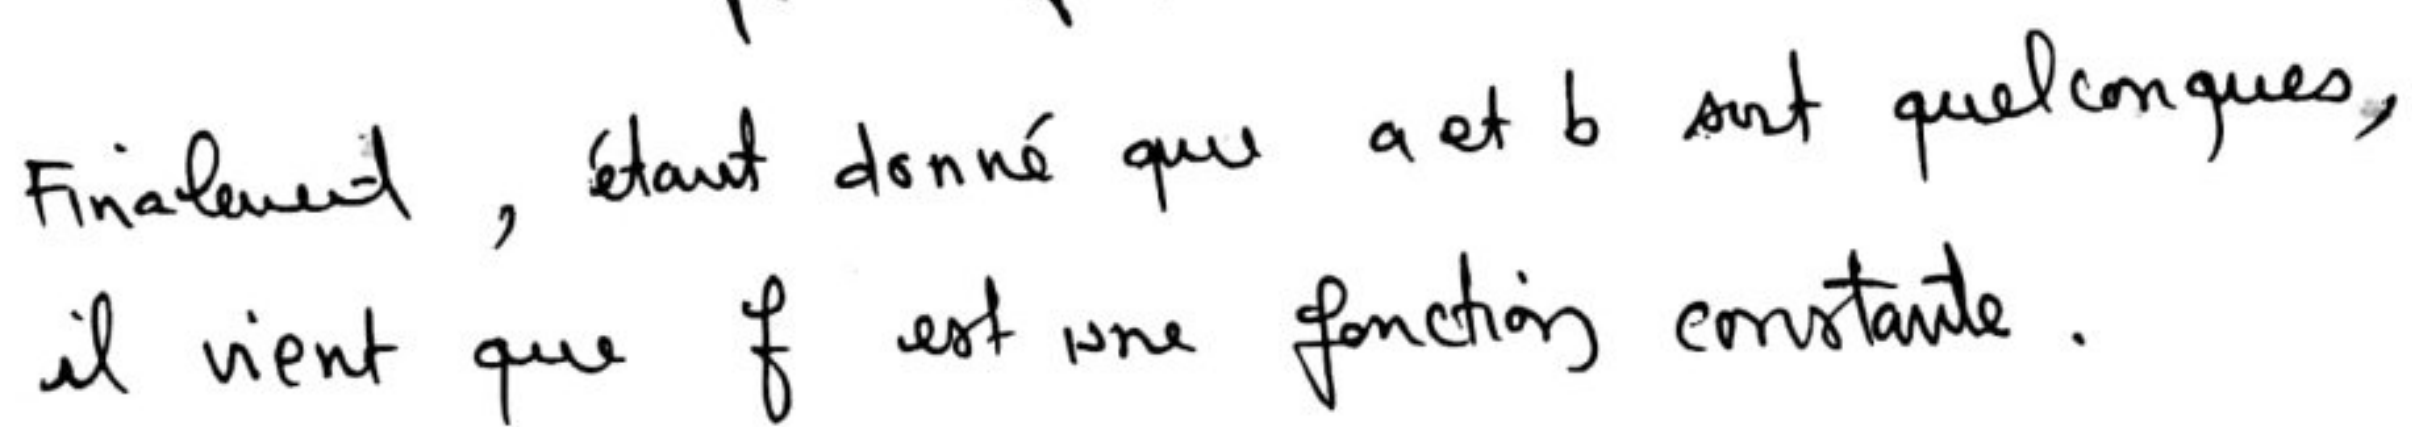 Finalement, étant donné que a et b sont quelconques,
il vient que f est une fonction constante.